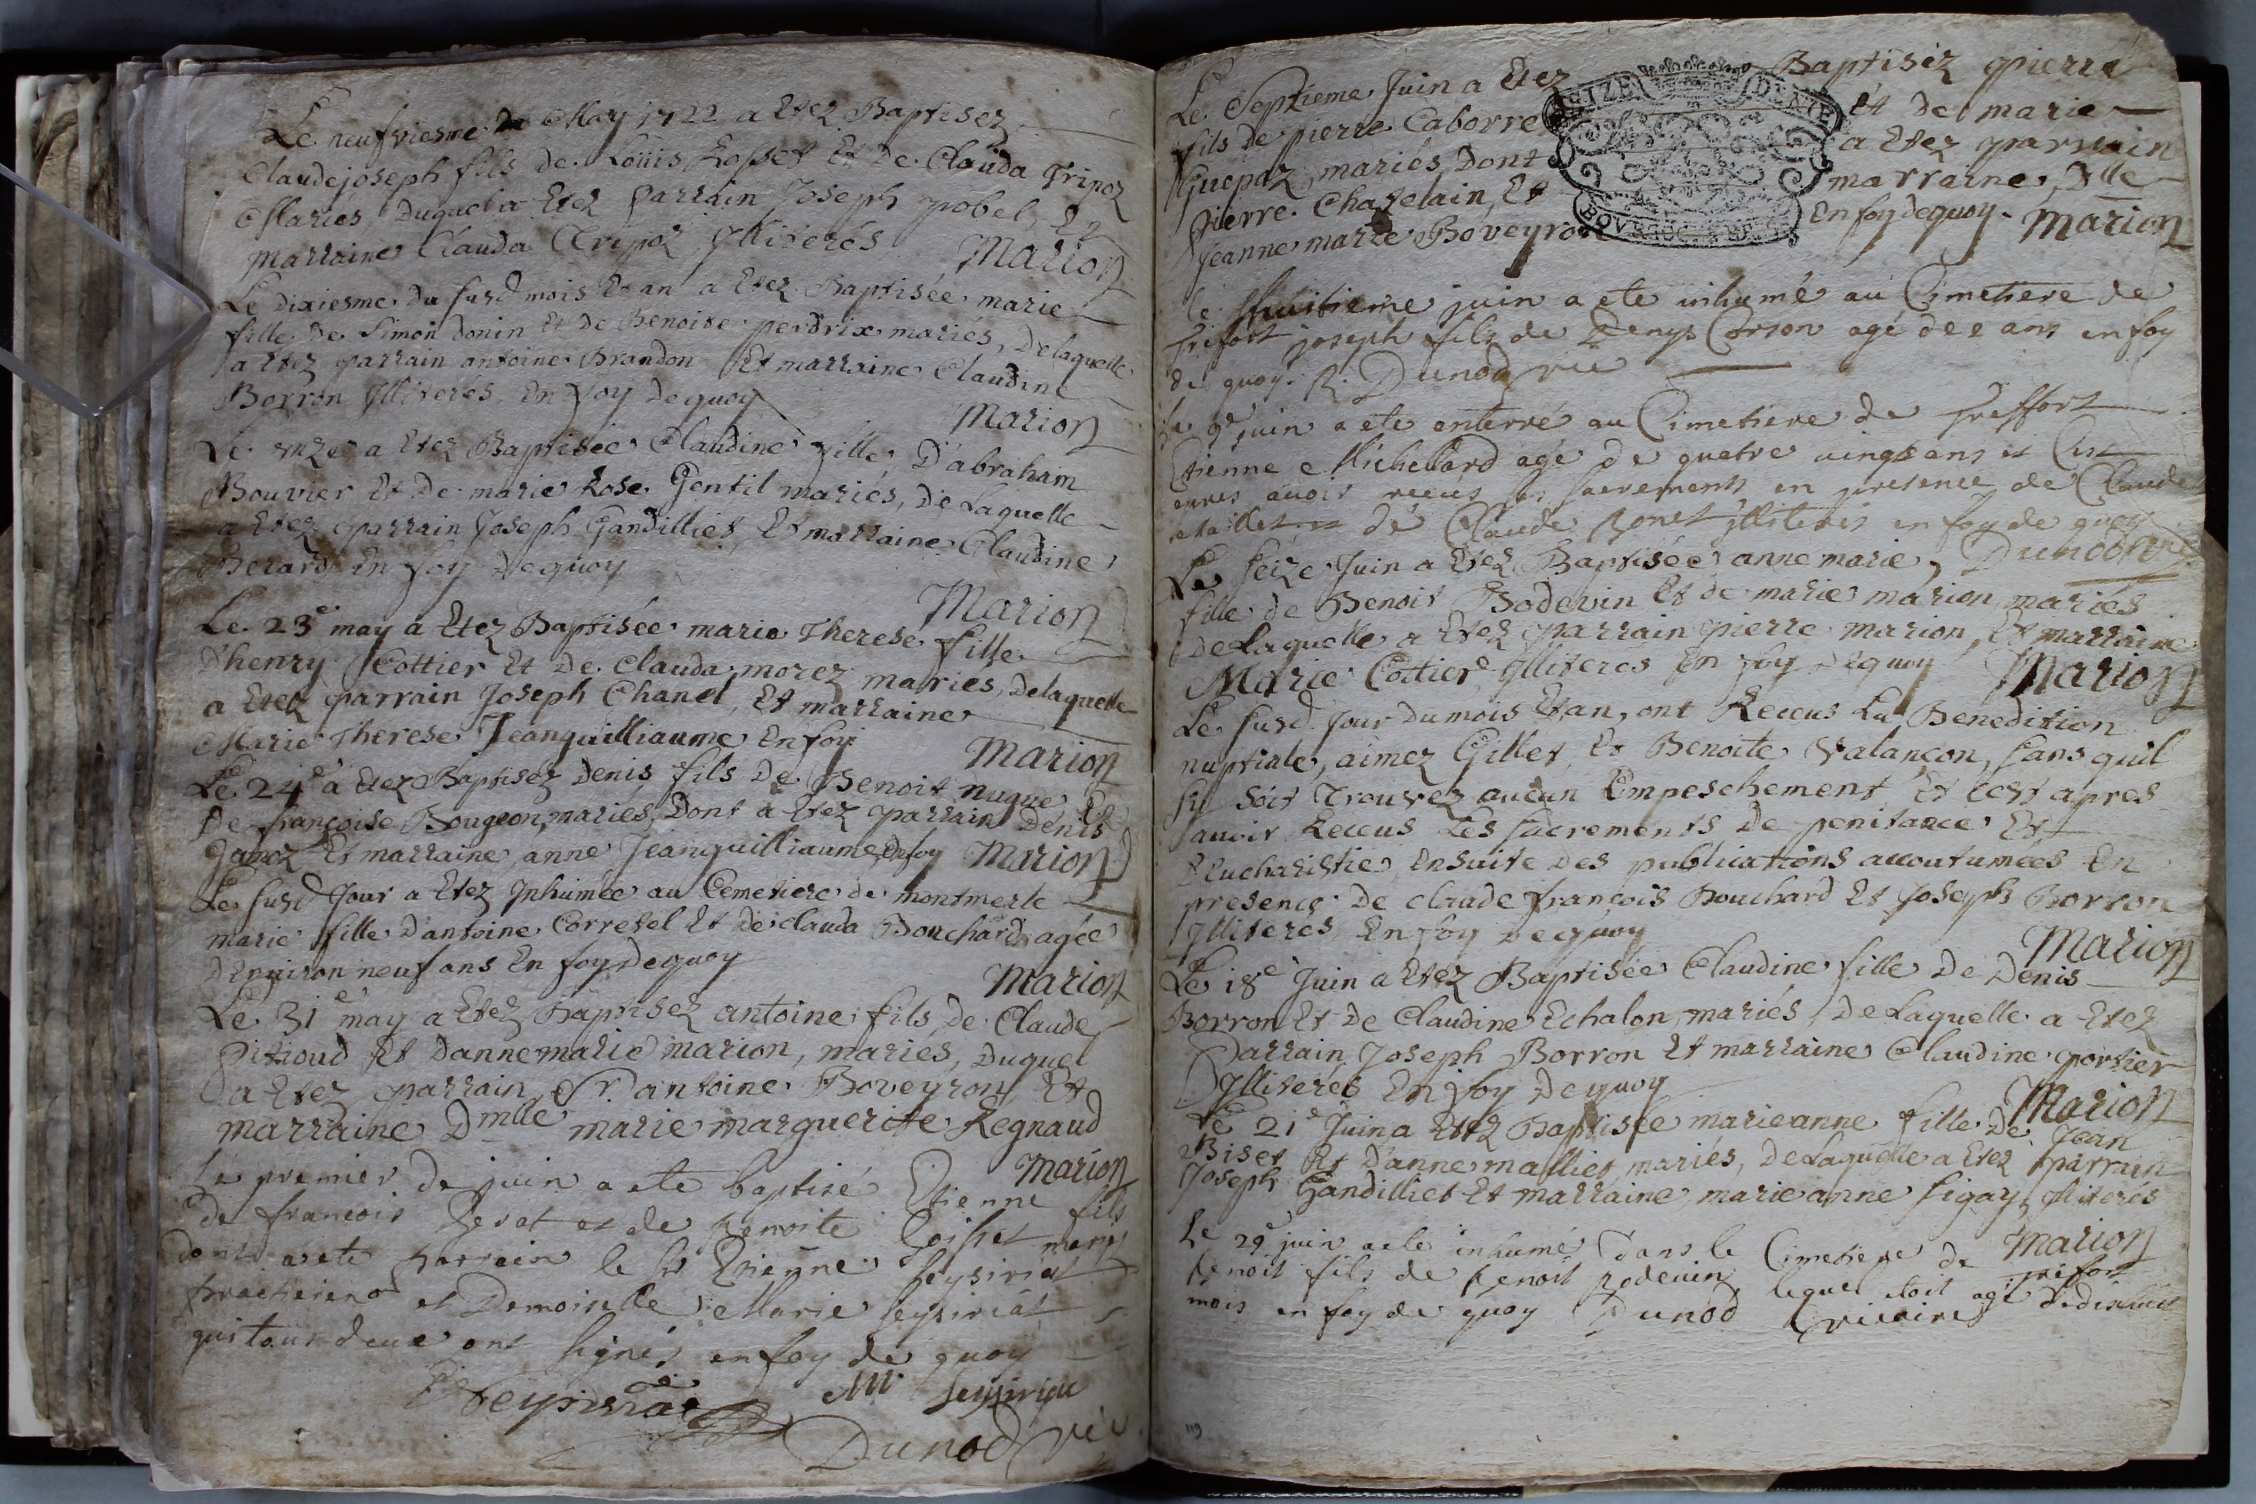 Le neufviesme De May 1722 a Etez Baptisez
Claudejoseph fils de Loüis Rosset Et De Clauda Tripoz
Mariés, Duquel a Etez Parrain Joseph pobel, Et
marraine Clauda Tripoz Jlliterés Marion
Le Dixiesme Du susd mois Et an a Etez Baptisée marie
fille De Simon donin Et de Benoite perdrix mariés, Delaquelle
a Etez parrain antoine Brandon Et marraine Claudine
Borron Jlliterés En foy Dequoy
Marion
Le onze a Etez Baptisée Claudine fille D'abraham
Bouvier Et De marie Rose Gentil mariés, De Laquelle
a Etez parrain Joseph Gandilliet, Et marraine Claudine
Berard En foy Dequoy
Marion
Le 23e may a Etez Baptisée marie Therese fille
D'henry Cottier Et De Clauda morez mariés, Delaquelle
a Etez parrain Joseph Chanel, Et marraine
Marie Therese Jeanguilliaume En foy Marion
Le 24e a Etez Baptisez Denis fils De Benoit nugue Et
De françoise Bougeon, mariés, Dont a Etez parrain Denis
Et marraine anne Jeanguilliaume, Enfoy Marion
Le susd Jour a Etez Jnhumée au Cemetiere de montmerle
marie fille D'antoine Corretel Et De Clauda Bouchard, agée
D'Environ neuf ans En foy Dequoy
Marion
Le 31e may a Etez Baptisez antoine fils De Claude
Pitioud Et Dannemarie marion, mariés, Duquel
a Etez parrain Sr. antoine Boveyron, Et
marraine Dmlle marie marguerite Regnaud
Marion
le premier de juin a ete baptisé Etienne fils
de francois Perat et de benoite Loisset mariés
dont a ete parrain le Sr Etienne Seysiriat
et Demoiselle Marie Seysiriat
qui tous deux ont signés en foy de quoy
E Seysiriat M Seysiriat
Dunod vic
Le Septieme Juin a Etez Baptisez pierre
fils de pierre Caborre Et De marie
Guepaz, mariés, Dont a Etez parrain
Pierre Chatelain, Et marraine, Dlle
Jeanne marie Boveyron En foy dequoy. Marion
SEIZE DENIE
BOVRGOG
le huitieme juin a ete inhumé au Cimetiere de
trefort joseph fils de Denys Corson agé de 2 ans en foy
de quoy. Dunod vic
le 9e juin a ete enterré au Cimetiere de Treffort
Etienne Michellard agé de quatre vingts ans et c'est
apres avoir receus ses sacrements en presence de Claude
et de Claude Bonet jlliterés en foy de quoy
Dunod vic
Le seize Juin a Etez Baptisée anne marie,
fille de Benoit Bodevin Et de marie marion mariés
De Laquelle a Etez parrain pierre marion, Et marraine
Marie Cottier Jlliterés En foy Dequoy Marion
Le susd. Jour Du mois Et an, ont Receus La Benedition
nuptiale, aimez Gillet, Et Benoite Valançon, sans quil
sy soit Trouvez aucun Empeschement Et cest apres
avoir Receus Les sacrements De penitance Et
D'Eucharistie, Ensuite Des publications accoutumées En
presence De claude françois Bouchard Et Joseph Borron
Jlliterés En foy Dequoy
Marion
Le 18e Juin a Etez Baptisée Claudine fille De Denis
Borron Et De Claudine Echalon, mariés, De Laquelle a Etez
Parrain Joseph Borron Et marraine Claudine portier
Jlliterés En foy Dequoy
Marion
Le 21e Juin a Etez Baptisée marieanne fille De Jean
Biset Et D'anne mallier mariés, De Laquelle a Etez parrain
Joseph Gandilliet Et marraine marie anne figay Jlliterés
Marion
Le 29e juin a ete inhumé dans le Cimetiere de trefort
benoit fils de benoit Bodevin, lequel etoit agé de dixhuit
mois en foy de quoy Dunod vicaire
119